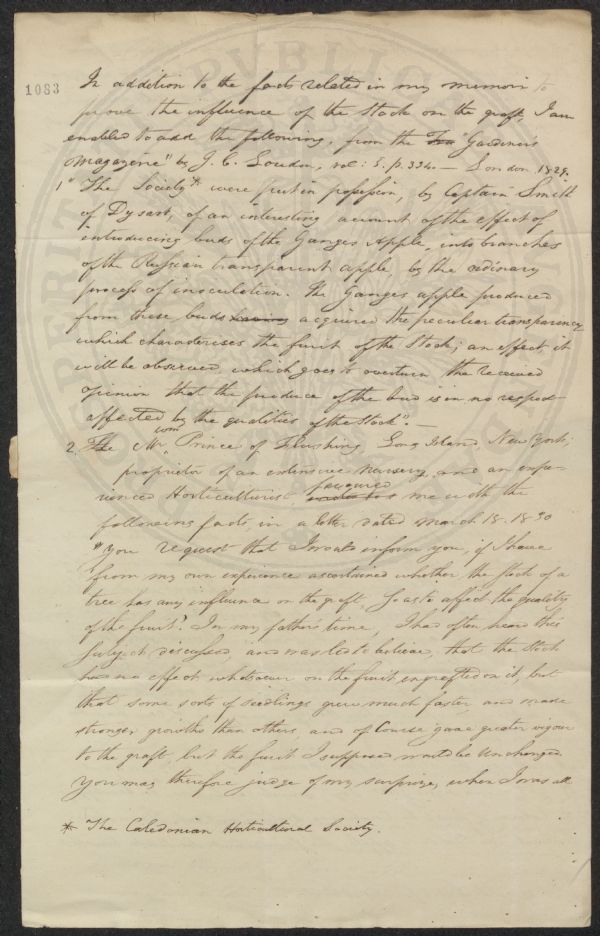 1083
In addition to the facts related in my memoir to
prove the influence of the Stock on the graft, I am
enabled to add the following, from the "Gardener's
Magazine" by J. C. Loudon, vol: 5. p. 334. — London 1829.
1 "The Society* were put in possession, by Captain Smith
of Dysart, of an interesting account of the effect of
introducing buds of the Ganges Apple, into branches
of the Russian transparent apple, by the ordinary
process of inoculation. The Ganges apple produced
from these buds having acquired the peculiar transparency
which characterises the fruit of the Stock; an effect, it
will be observed, which goes to overturn the received
opinion that the produce of the bud is in no respect
affected by the qualities of the Stock". —
2. The Mr Wm Prince of Flushing, Long Island, New York,
proprietor of an extensive nursery, and an expe-
rienced Horticulturist favoured me with the
following facts, in a letter dated March 18. 1830
"You request that I would inform you, if I have
from my own experience ascertained whether the stock of a
tree has any influence on the graft, so as to affect the quality
of the fruit? In my father's time, I had often hear this
subject discussed, and was led to believe, that the stock
had no effect whatever on the fruit engrafted on it, but
that some sorts of seedlings grew much faster and made
stronger growths than others, and of Course gave greater vigour
to the graft, but the fruit I supposed would be unchanged
You may therefore judge of my surprize, when I was at
* The Caledonian Horticultural Society.